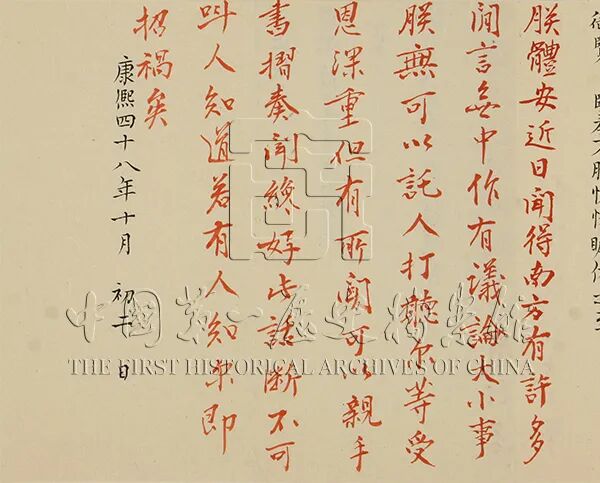 朕體安近日聞得南方有許多
閒言無中作有議論大小事
朕無可以託人打聽尔等受
恩深重但有所聞可以親手
書摺奏聞纔好此話断不可
叫人知道若有人知尔即
招禍矣
康熙四十八年十月 初二 日
中國第一歷史檔案館
THE FIRST HISTORICAL ARCHIVES OF CHINA